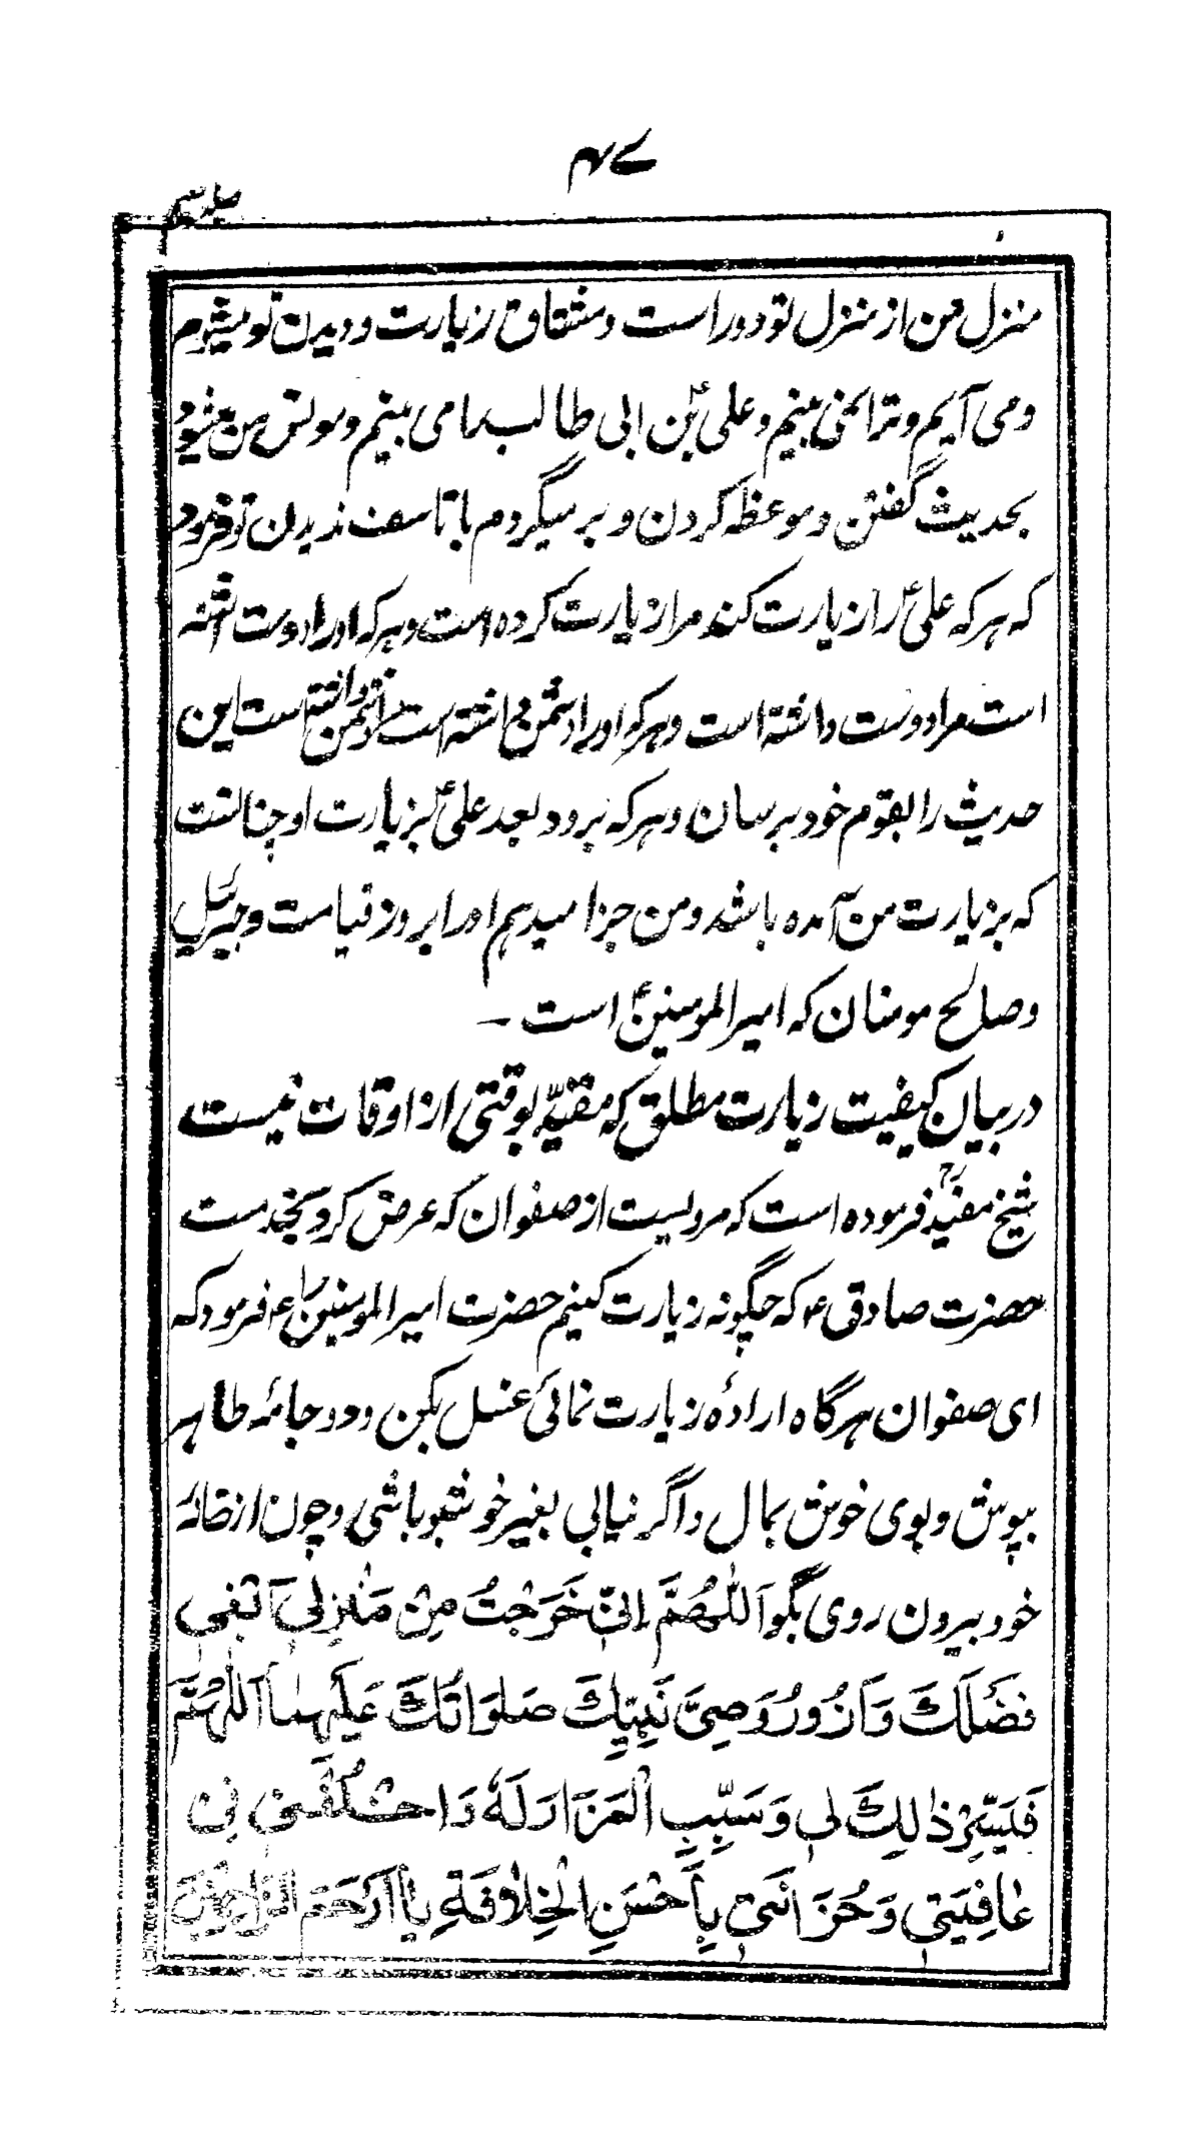 ۴۷
جلد سیم
منزل من از منزل تو دور است و مشتاق زیارت و دیدن تو میشوم
و می آیم و ترا نمی بینم و علیؑ بن ابی طالب را می بینم و مونس من میشود
بحدیث گفتن و موعظه کردن و بر میگردم با تاسف ندیدن تو فرمود
که هرکه علیؑ را زیارت کند مرا زیارت کرده است و هرکه اورا دوست داشته
است مرا دوست داشته است و هرکه اورا دشمن داشته است مرا دشمن داشته است این
حدیث را بقوم خود برسان و هرکه برود بعد علیؑ بزیارت او چنانست
که بزیارت من آمده باشد و من جزا میدهم اورا بروز قیامت و جبرئیل
و صالح مومنان که امیرالمومنینؑ است ـ
در بیان کیفیت زیارت مطلق که مقیّد بوقتی از اوقات نیست
شیخ مفیدؒ فرموده است که مرویست از صفوان که عرض کرد بخدمت
حضرت صادقؑ که چگونه زیارت کنیم حضرت امیرالمومنینؑ را فرمود که
ای صفوان هرگاه ارادهٔ زیارت نمائی غسل بکن و دو جامۂ طاهر
بپوش و بوی خوش بمال و اگر نیابی بغیر خوشبو باشی و چون از خانۂ
خود بیرون روی بگو اَللّٰهُمَّ اِنّیِ خَرَجْتُ مِنْ مَنْزِلیِ اَبْغیِ
فَضْلَكَ وَاَزُوْرُ وَصِیَّ نَبِیِّكَ صَلَوَاتُكَ عَلَیْهِمَا اَللّٰهُمَّ
فَیَسِّرْ ذٰلِكَ لیِ وَسَبِّبِ الْمَزَارَ لَهٗ وَاخْلُفْنیِ فیِ
عَاقِبَتیِ وَحُزَانَتیِ بِاَحْسَنِ الْخِلَافَةِ یَا اَرْحَمَ الرَّاحِمِیْنَ